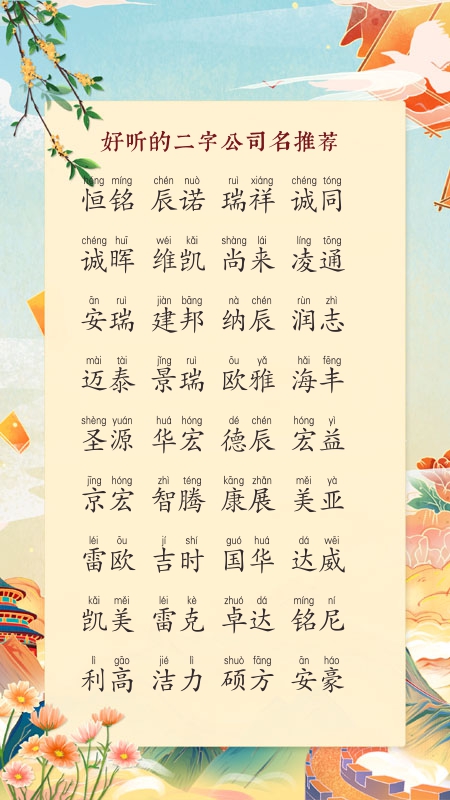 好听的二字公司名推荐
héng míng chén nuò ruì xiáng chéng tóng
恒铭 辰诺 瑞祥 诚同
chéng huī wéi kǎi shàng lái líng tōng
诚晖 维凯 尚来 凌通
ān ruì jiàn bāng nà chén rùn zhì
安瑞 建邦 纳辰 润志
mài tài jǐng ruì ōu yǎ hǎi fēng
迈泰 景瑞 欧雅 海丰
shèng yuán huá hóng dé chén hóng yì
圣源 华宏 德辰 宏益
jīng hóng zhì téng kāng zhǎn měi yà
京宏 智腾 康展 美亚
léi ōu jí shí guó huá dá wēi
雷欧 吉时 国华 达威
kǎi měi léi kè zhuó dá míng ní
凯美 雷克 卓达 铭尼
lì gāo jié lì shuò fāng ān háo
利高 洁力 硕方 安豪